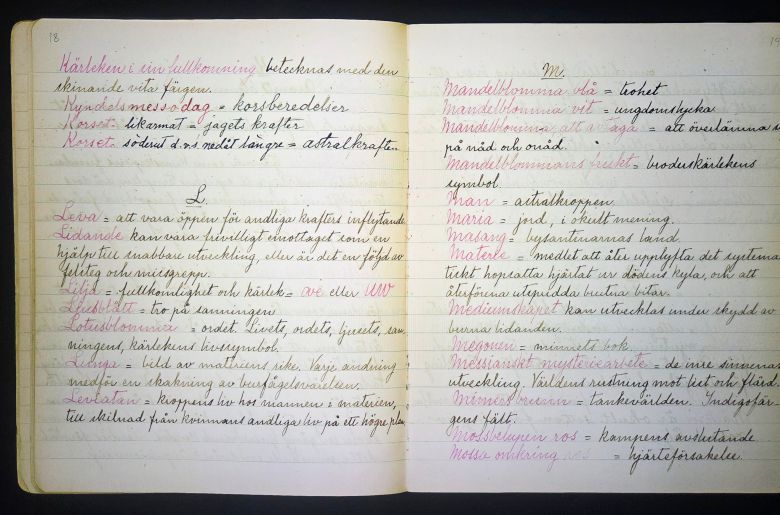 18
Kärleken i sin fullkomning betecknas med den
skinande vita färgen.
Kyndelsmessodag = korsberedelser
Korset likarmat = jagets krafter
Korset söderut d.v.s nedåt längre = astralkraften
L.
Leva = att vara öppen för andliga krafters inflytande
Lidande kan vara frivilligt emottaget som en
hjälp till snabbare utveckling, eller är det en följd av
felsteg och missgrepp.
Lilja = fullkomlighet och kärlek = ave eller UW
Ljusblått = tro på sanningen
Lotusblomma = ordet. Livets, ordets, ljusets, san-
ningens, kärlekens livssymbol.
Lunga = bild av materiens rike. Varje andning
medför en skakning av
Leviatan = kroppens liv hos mannen i materien,
till skilnad från kvinnans andliga liv på ett högre plan
M.
Mandelblomma blå = trohet
Mandelblomma vit = ungdomslycka
Mandelblomma, att taga = att överlämna
på nåd och onåd.
Mandelblommans frukt = broderskärlekens
symbol.
Man = astralkroppen.
Maria = jord, i okult mening.
Masang = bysantenarnas land.
Materie = medlet att åter upplyfta det systema-
tiskt hopsatta hjärtat ur dödens kyla, och att
återförena utspridda brutna bitar.
Mediumskapet kan utvecklas under skydd av
burna lidanden.
Megonen = minnets bok.
Messianskt mysteriearbete = de inre sinnenas
utveckling. Världens rustning mot list och flärd.
Mimers brunn = tankevärlden. Indigofär-
gens fält.
Mossbelupen ros = kampens avslutande
Mossa omkring ros = hjärteförsakelse.